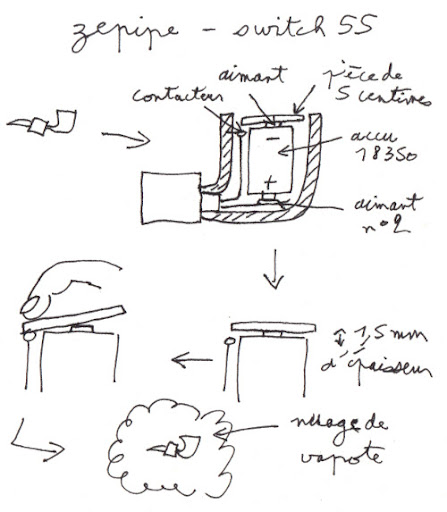 zepipe - switch 55
aimant
pièce de
5 centimes
contacteur
accu
18350
-
+
aimant
n°2
1,5 mm
d'épaisseur
nuage de
vapote